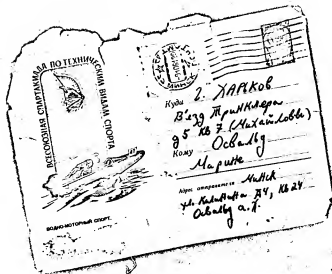 ВСЕСОЮЗНАЯ СПАРТАКИАДА ПО ТЕХНИЧЕСКИМ ВИДАМ СПОРТА
ВОДНО-МОТОРНЫЙ СПОРТ.
Куда г. ХАРЬКОВ
В'езд Тринклера
д 5 кв 7 (Михайловы)
Кому Освальд
Марине
Адрес отправителя Минск
ул. Калинина Д4, кв 24
Освальд А.